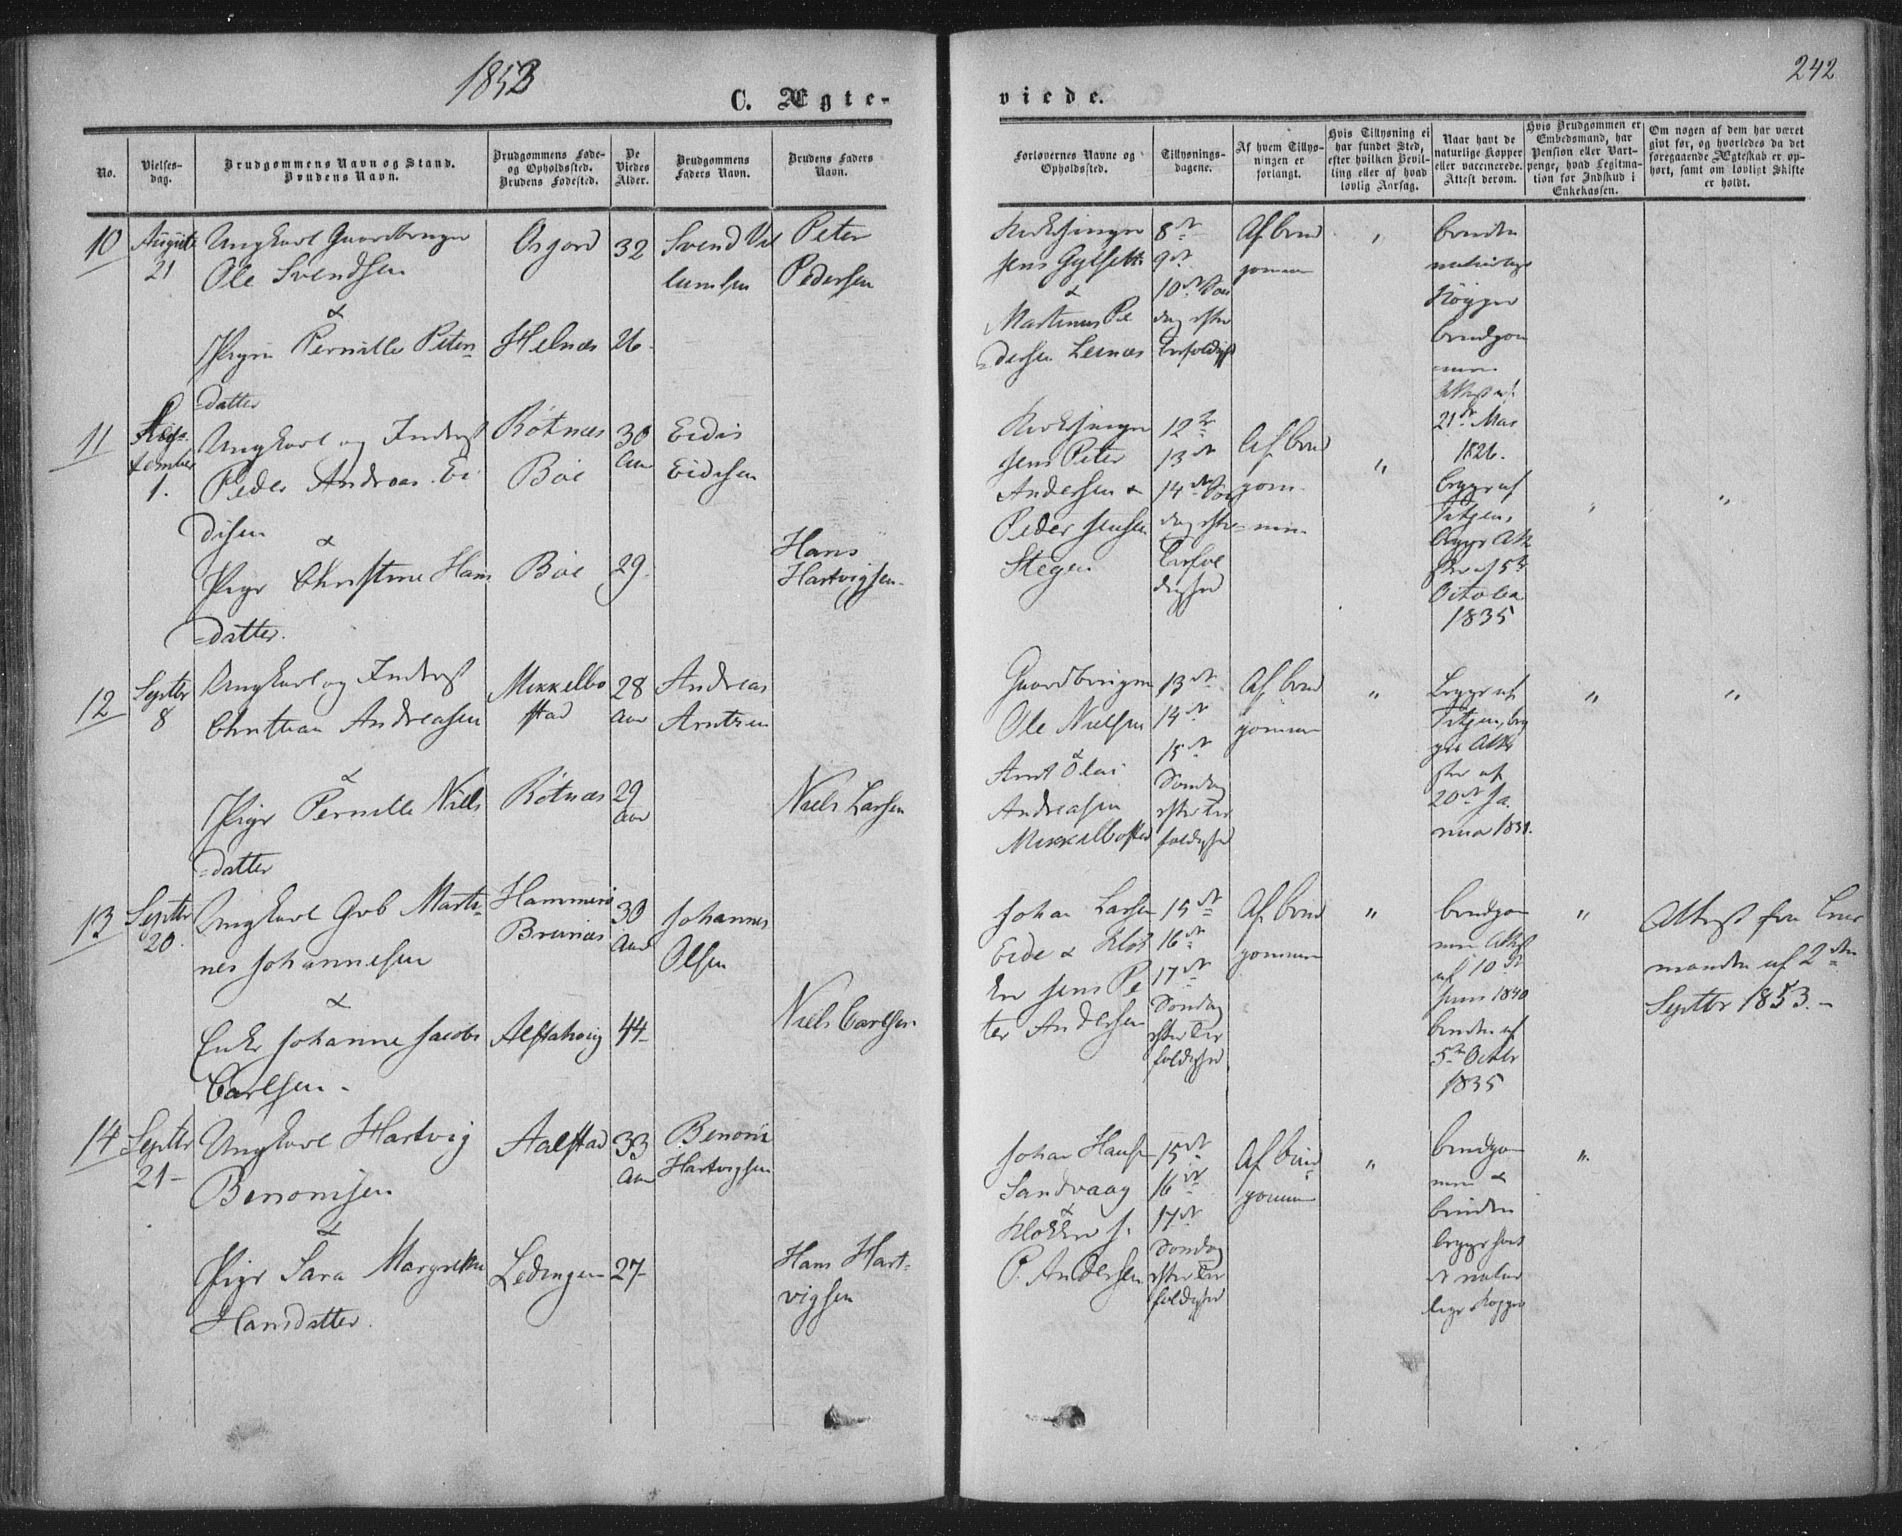 1853
242
C. Ægte-
viede.
No.
Vielses-
dag.
Brudgommens Navn og Stand.
Brudens Navn.
Brudgommens Føde-
og Opholdssted.
Brudens Fødested.
De
Viedes
Alder.
Brudgommens
Faders Navn.
Brudens Faders
Navn.
Forlovernes Navne og
Opholdssted.
Tillysnings-
dagene.
Af hvem Tillys-
ningen er
forlangt.
Hvis Tillysning ei
har fundet Sted,
efter hvilken Bevil-
ling eller af hvad
lovlig Aarsag.
Naar havt de
naturlige Kopper
eller vaccinerede.
Attest derom.
Hvis Brudgommen er
Embedsmand, har
Pension eller Vart-
penge, hvad Legitima-
tion for Indskud i
Enkekassen.
Om nogen af dem har været
givt før, og hvorledes da det
foregaaende Ægteskab er op-
hørt, samt om lovligt Skifte
er holdt.
10
August
21
Ungkarl Gaardbruger
Ole Svendsen
&
Pige Pernille Peters
=datter
Helnæs
32
26
Svend
Peter
Pedersen
Kirkesanger
Jens
&
Martinus Pe
=dersen
8de
9de
10de
dag efter
Af brud
gommen
Bruden
naturlige
Kopper
brudgom
men
21de Mai
1826.
11
Sep=
tember
1.
Ungkarl og Inderst
Peder Andreas Ei
disen
&
Pige Christine Hans
datter.
Røtnæs
Böe
Böe
30
Aar
29.
Eidis
Eidisen
Hans
Hartvigsen.
Kirkesanger
Jens Peter
Andersen &
Peder Jensen
Stegen
12te
13de
14de Søn
dag efter
Trefol
dighed
Af brud
gom
men
"
begge af
October
1835
"
"
12
Septbr
8
Ungkarl og Inderst
Christian Andreasen
&
Pige Pernille Niels
=datter
Mikkelbo
stad
Røtnæs
28
Aar
29
Aar
Andreas
Arntzen
Niels Larsen
Gaardbruger
Ole Nielsen
&
Arnt Olai
Andreasen
Mikkelbostad
13de
14de
15de
Søndag
efter Tre
foldighed
Af brud
gommen
"
begge af
20de Ja
nuar 1831.
"
"
13
Septbr
20.
Ungkarl Grb Marti
nes Johannesen
&
Enke Johanne Jacobi
Carlsen.
Alstahoug
30
Aar
44
Johannes
Olsen
Niels Carlsen
Johan Larsen
Eide & Klok
ker Jens Pe
ter Andersen
15de
16de
17de
Søndag
efter Tre
foldighed
Af brud
gommen
"
brudgom
men Attest
af 10de
Juni 1840
bruden af
5te Octbr
1835
"
Attest fra
manden af 2den
Septbr 1853.
14
Septbr
21
Ungkarl Hartvig
Benonisen
&
Pige Sara Margrethe
Hansdatter.
Aalstad
Lødingen
33
Aar
27
Benoni
Hartvigsen
Hans Hart-
vigsen
Johan Hansen
Sandvaag
&
Klokker J.
P. Andersen
15de
16de
17de
Søndag
efter Tre
foldighed
Af brud
gommen
"
brudgom
men &
bruden
begge havt
de natur
lige Kopper
"